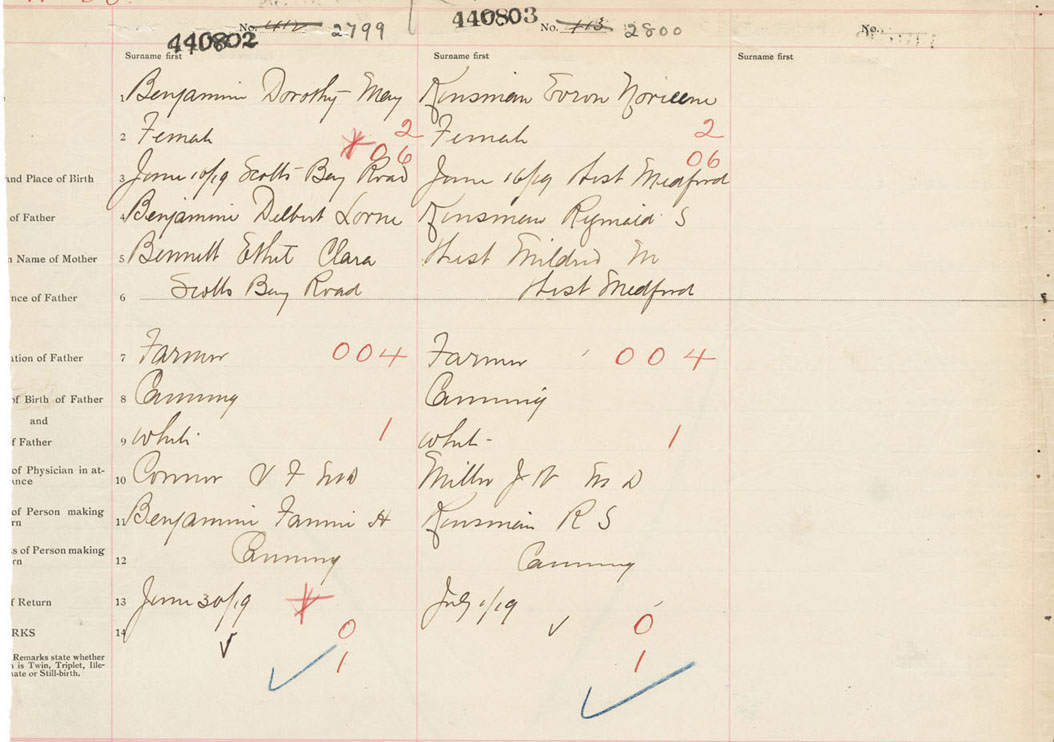 440802 No. 112 2799
440803 No. 113 2800
No.
Surname first Surname first Surname first
1 Benjamin Dorothy May Kinsman Noriene
2 Female 2 Female 2
06 06
and Place of Birth 3 June 10/19 Scotts Bay Road June 16/19 West Medford
of Father 4 Benjamin Delbert Lorne Kinsman S
n Name of Mother 5 Bennett Ethel Clara West Mildred M
nce of Father 6 Scotts Bay Road West Medford
ation of Father 7 Farmer 004 Farmer 004
of Birth of Father 8 Canning Canning
and
f Father 9 White 1 White 1
of Physician in at-
ance 10 Connor V F M D Miller J W M D
of Person making
rn 11 Benjamin Fannie H Kinsman R S
ss of Person making
rn 12 Canning Canning
f Return 13 June 30/19 July 1/19
RKS 14 0 0
Remarks state whether
n is Twin, Triplet, Ille-
nate or Still-birth. 1 1